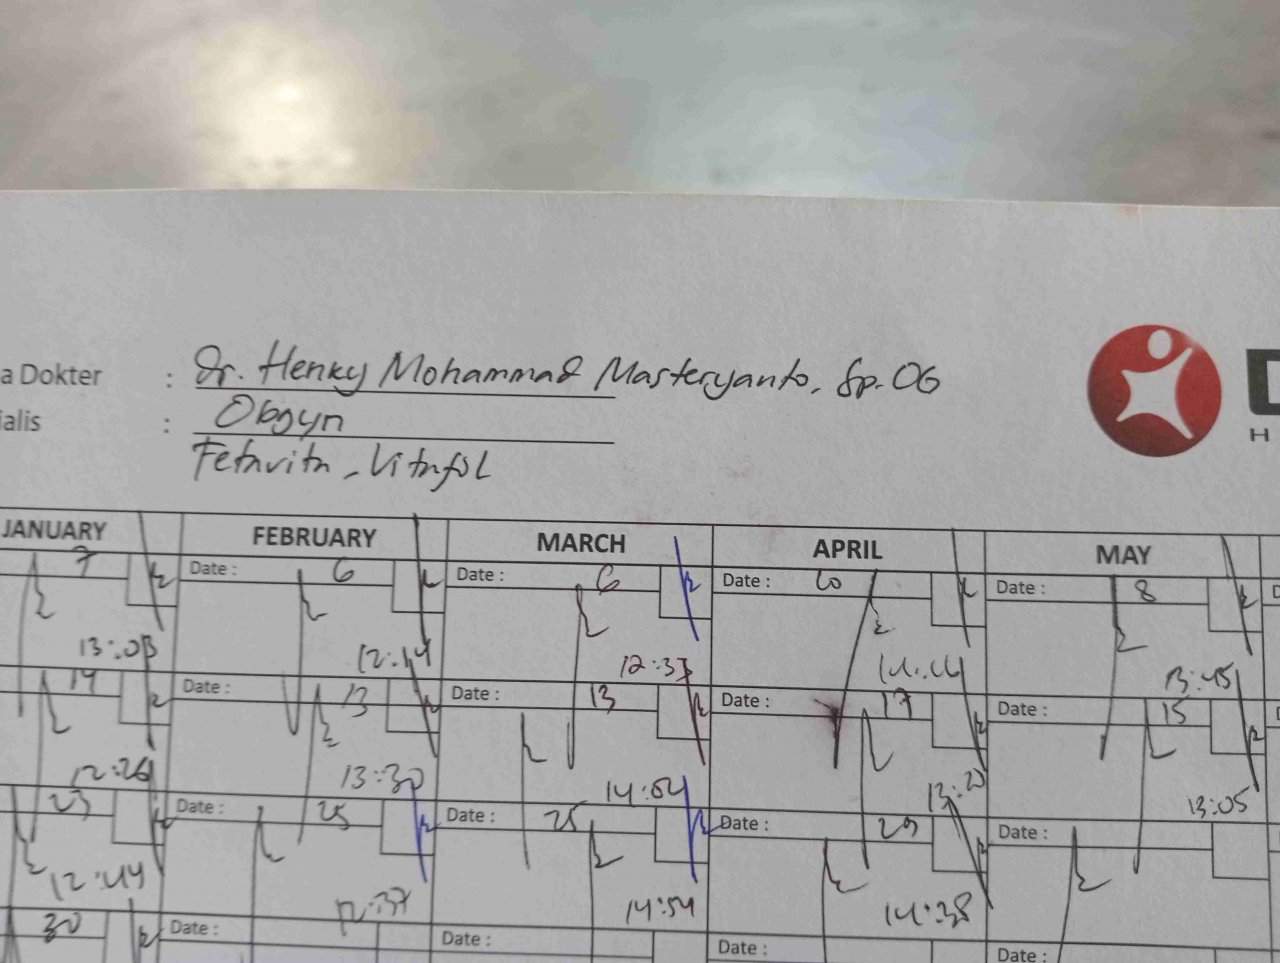 a Dokter : Dr. Henky Mohammad Masteryanto, Sp.OG
ialis : Obgyn
Fetavita - Vitafol
D
H
JANUARY FEBRUARY MARCH APRIL MAY
7 Date : 6 Date : 6 Date : 10 Date : 8
13:03 12:14 12:37 14:44 13:45
14 Date : 13 Date : 13 Date : 17 Date : 15
12:26 13:30 14:04 13:20 13:05
23 Date : 25 Date : 25 Date : 29 Date :
12:44 12:37 14:54 14:38
30 Date : Date : Date : Date :